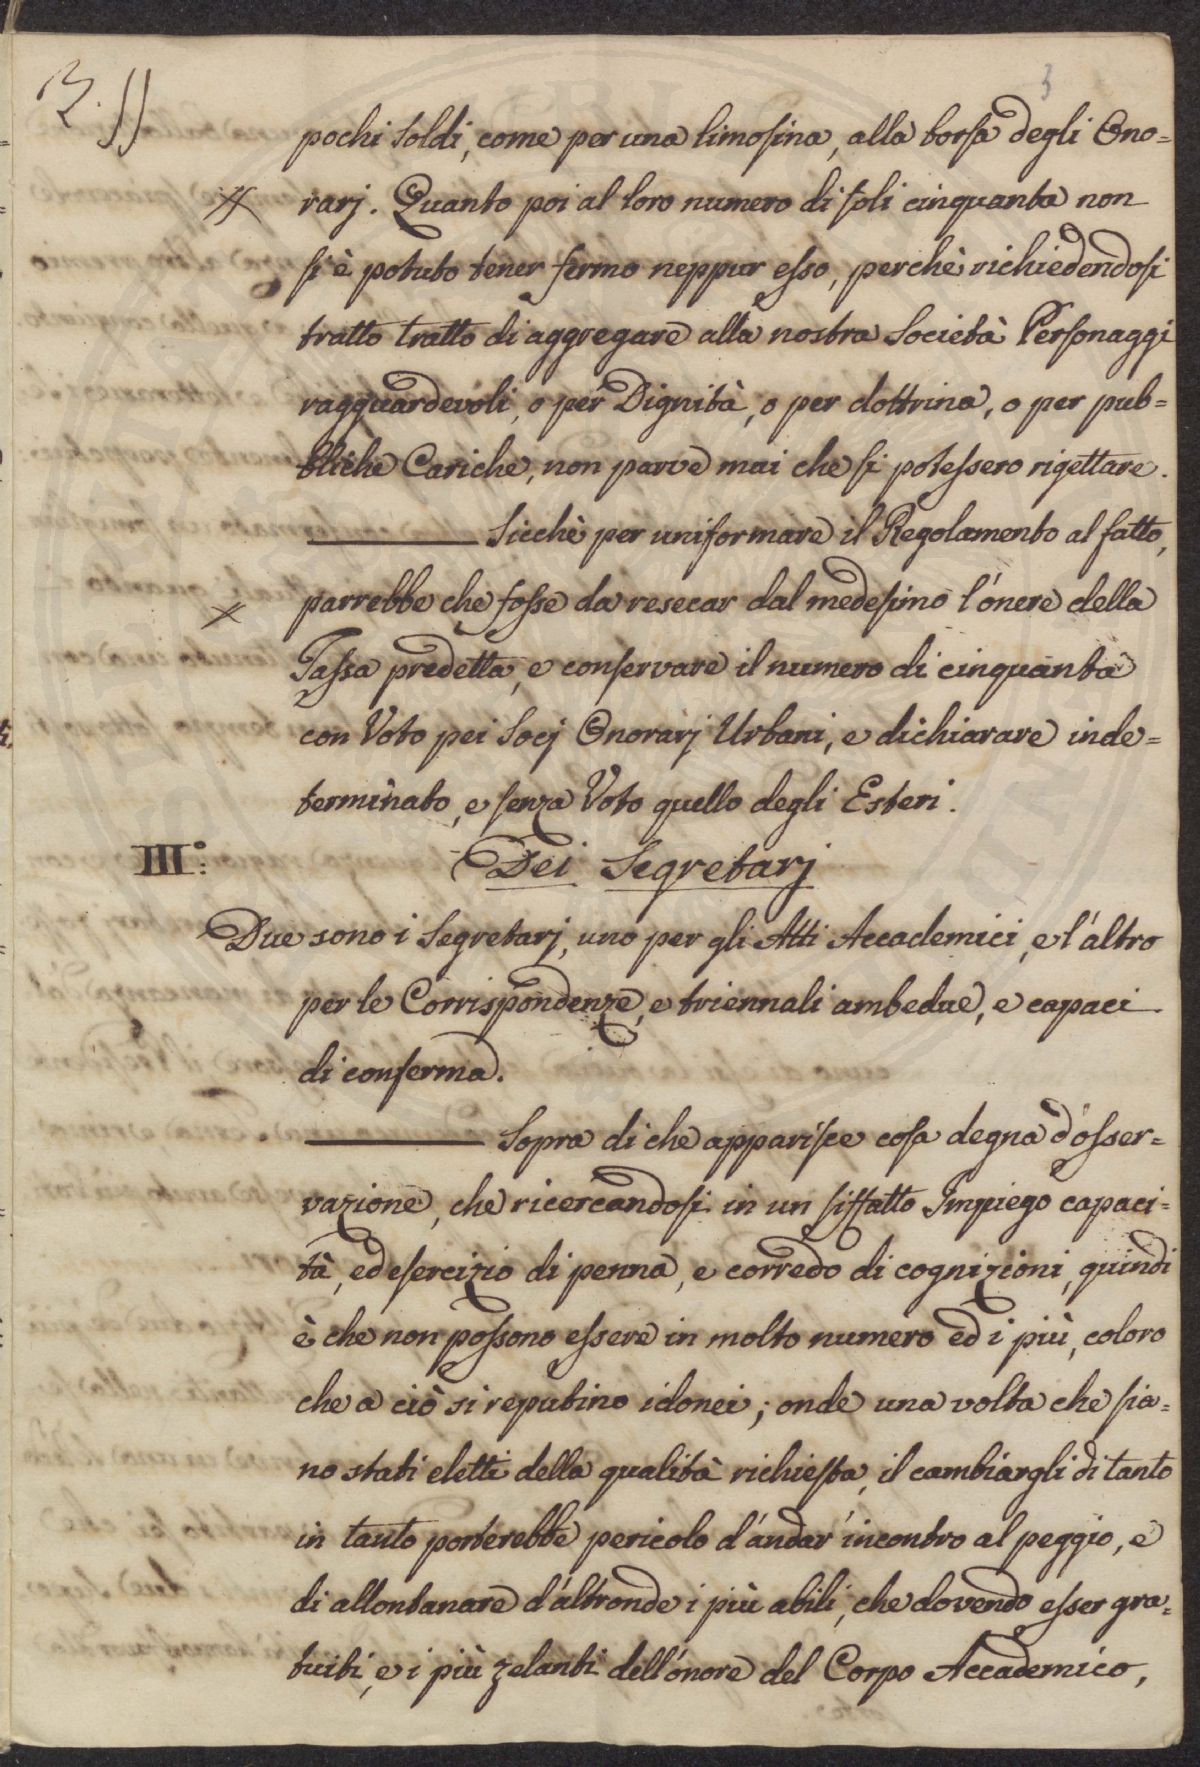 3.
3
pochi soldi, come per una limosina, alla borsa degli Ono=
rarj. Quanto poi al loro numero di soli cinquanta non
si è potuto tener fermo neppur esso, perchè richiedendosi
tratto tratto di aggregare alla nostra Società Personaggi
ragguardevoli, o per Dignità, o per dottrina, o per pub=
bliche Cariche, non parve mai che si potessero rigettare.
Sicchè per uniformare il Regolamento al fatto,
parrebbe che fosse da resecar dal medesimo l'onere della
Tassa predetta, e conservare il numero di cinquanta
con Voto pei Socj Onorarj Urbani, e dichiarare inde=
terminato, e senza Voto quello degli Esteri.
III.°
Dei Segretarj
Due sono i Segretarj, uno per gli Atti Accademici, e l'altro
per le Corrispondenze, e triennali ambedue, e capaci
di conferma.
Sopra di che apparisce cosa degna d'osser=
vazione, che ricercandosi in un siffatto Impiego capaci=
tà, ed esercizio di penna, e corredo di cognizioni, quindi
è che non possono essere in molto numero ed i più, coloro
che a ciò si reputino idonei; onde una volta che sia=
no stati eletti della qualità richiesta, il cambiargli di tanto
in tanto porterebbe pericolo d'andar incontro al peggio, e
di allontanare d'altronde i più abili, che dovendo esser gra=
tuiti, e i più zelanti dell'onore del Corpo Accademico,